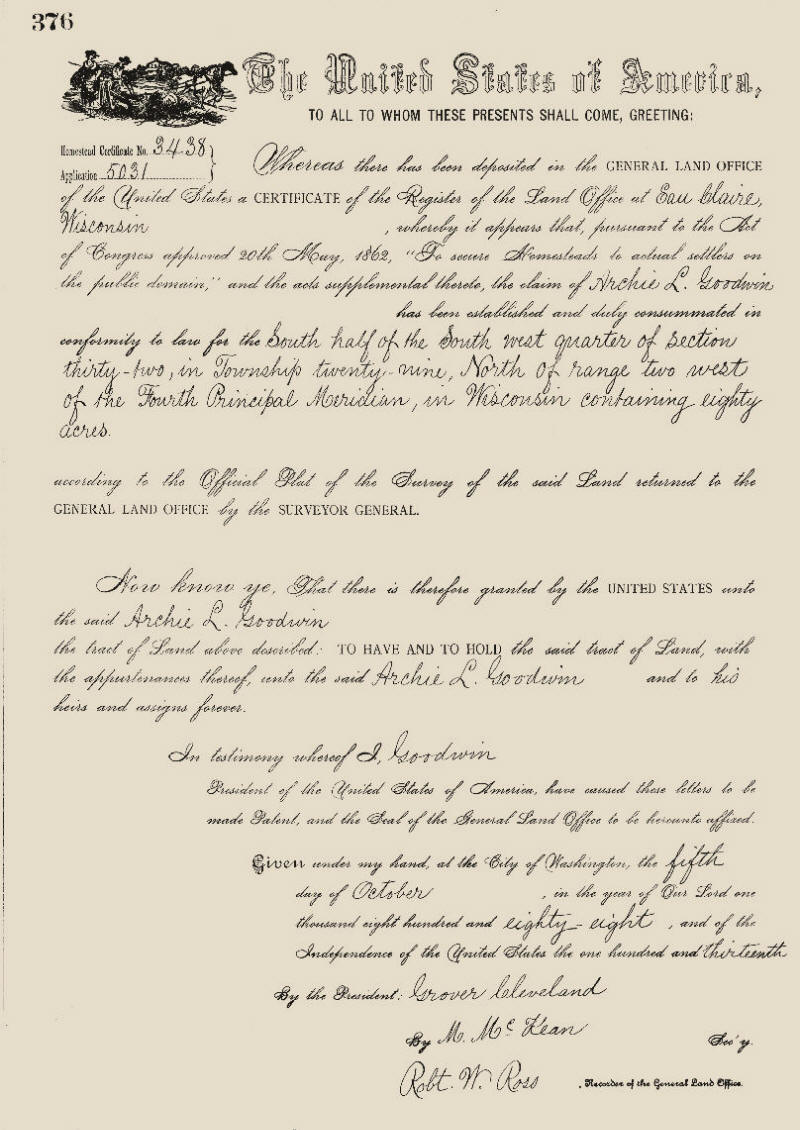 376
The United States of America,
TO ALL TO WHOM THESE PRESENTS SHALL COME, GREETING:
Homestead Certificate No. 3438
Application 5031
Whereas there has been deposited in the GENERAL LAND OFFICE
of the United States a CERTIFICATE of the Register of the Land Office at Eau Claire,
Wisconsin , whereby it appears that, pursuant to the Act
of Congress approved 20th May, 1862, "To secure Homesteads to actual settlers on
the public domain," and the acts supplemental thereto, the claim of Archie L. Goodwin
has been established and duly consummated in
conformity to law for the South half of the South west quarter of section
thirty-two, in Township twenty-nine, North of range two west
of the Fourth Principal Meridian, in Wisconsin containing eighty
acres.
according to the Official Plat of the Survey of the said Land returned to the
GENERAL LAND OFFICE by the SURVEYOR GENERAL.
Now know ye, That there is therefore granted by the UNITED STATES unto
the said Archie L. Goodwin
the tract of Land above described: TO HAVE AND TO HOLD the said tract of Land, with
the appurtenances thereof, unto the said Archie L. Goodwin and to his
heirs and assigns forever.
In testimony whereof I, Goodwin
President of the United States of America, have caused these letters to be
made Patent, and the Seal of the General Land Office to be hereunto affixed.
Given under my hand, at the City of Washington, the fifth
day of October , in the year of Our Lord one
thousand eight hundred and eighty-eight , and of the
Independence of the United States the one hundred and thirteenth
By the President: Grover Cleveland
By M. McKean Sec'y.
Robt. W. Ross , Recorder of the General Land Office.